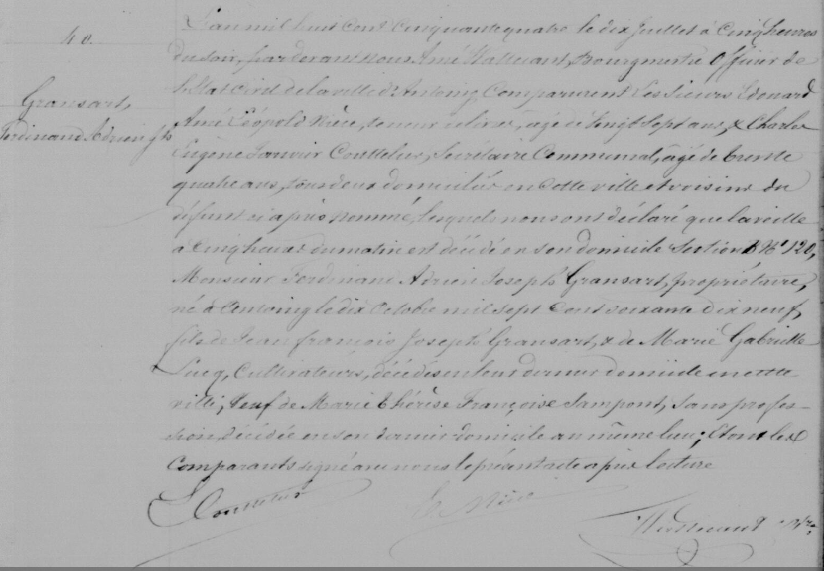 40.
Gransart,
Ferdinand Adrien Jh
L'an mil huit cent cinquante quatre le dix Juillet à Cinq heures
du soir, par devant nous Amé Bourgmestre Officier de
l'Etat Civil de la ville d'Antoing Comparurent Les sieurs Edouard
Amé Léopold teneur de livres, âgé de Vingt sept ans, & Charles
Eugène Janvier Couttelier, Secrétaire Communal, âgé de trente
quatre ans, tous deux domiciliés en cette ville et voisins du
défunt ci après nommé, lesquels nous ont déclaré que la veille
à cinq heures du matin est décédé en son domicile Section B No 120,
Monsieur Ferdinand Adrien Joseph Gransart, propriétaire,
né à Antoing le dix Octobre mil sept Cent soixante dix neuf,
fils de Jean françois Joseph Gransart, & de Marie Gabrielle
Lucq, Cultivateurs, décédés en leur dernier domicile en cette
ville, Veuf de Marie Thérèse Françoise Sampont, sans profes-
sion, décédée en son dernier domicile au même lieu; Et ont les
Comparants signé avec nous le présent acte après lecture